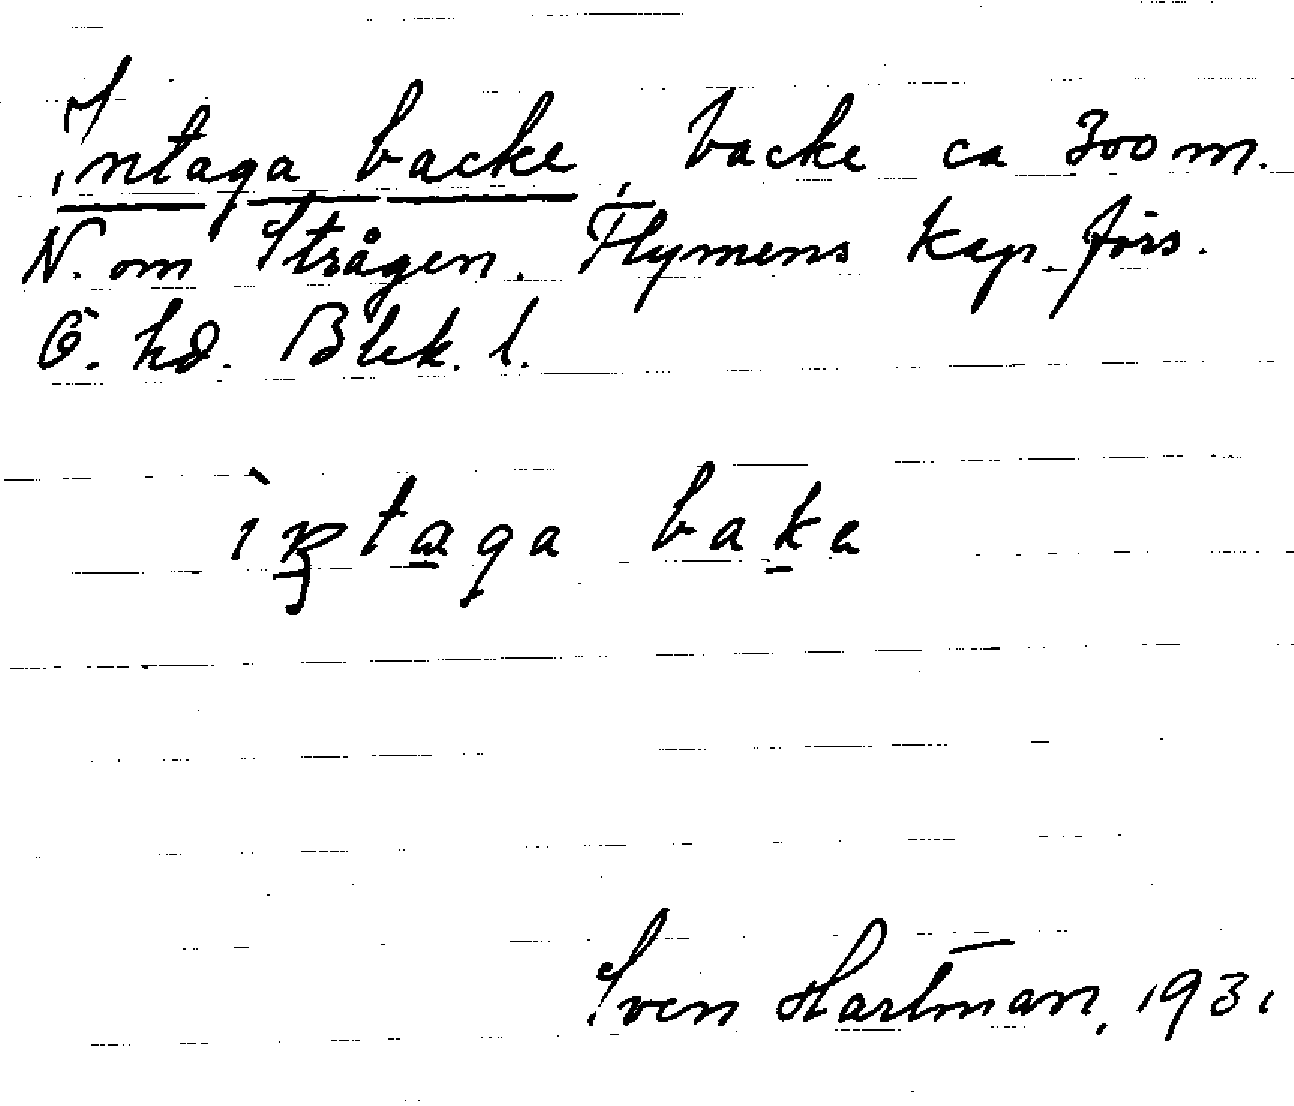 Intaga backe, backe ca 300 m.
N. om Strågen. Flymens kap. förs.
Ö. hd. Blek. l.
ìn̥taga bake
Sven Hartman, 1931